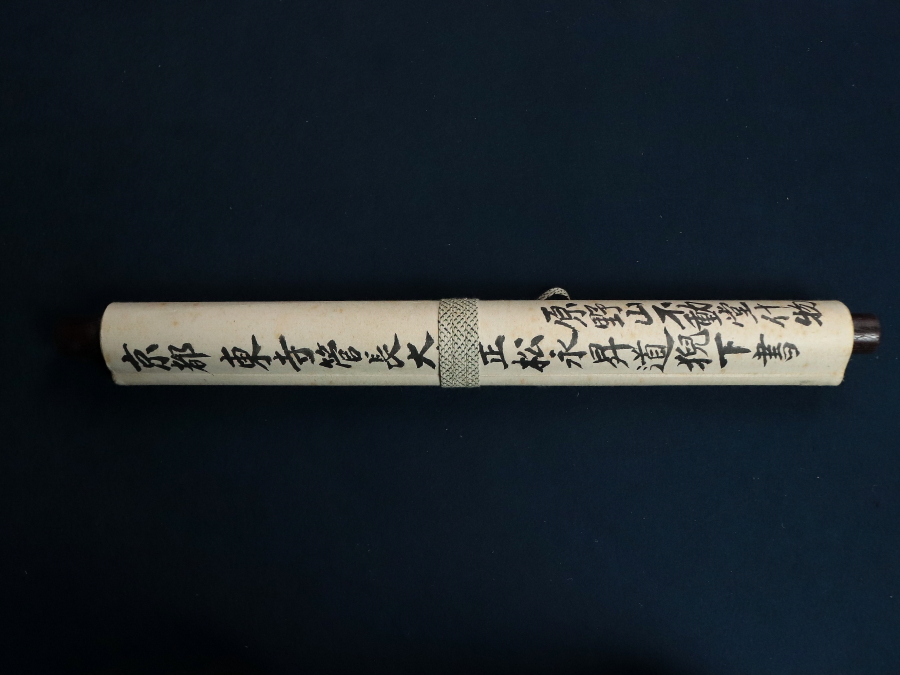 原野山不動堂什物
京都 東寺管長大 正松永昇道猊下書